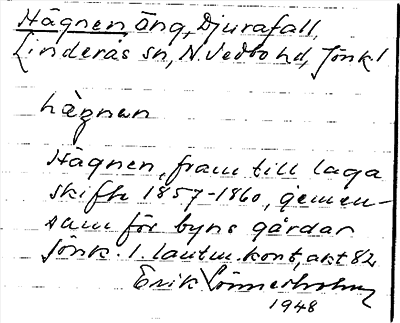 Hägnen, Äng, Djurafall,
Linderås sn, N. Vedbo hd, Jönk. l
hägnen
Hägnen, fram till laga
skifte 1857-1860, gemen-
sam för byns gårdar
Jönk. l. lantm. kont, akt 82
Erik Lönnerholm
1948